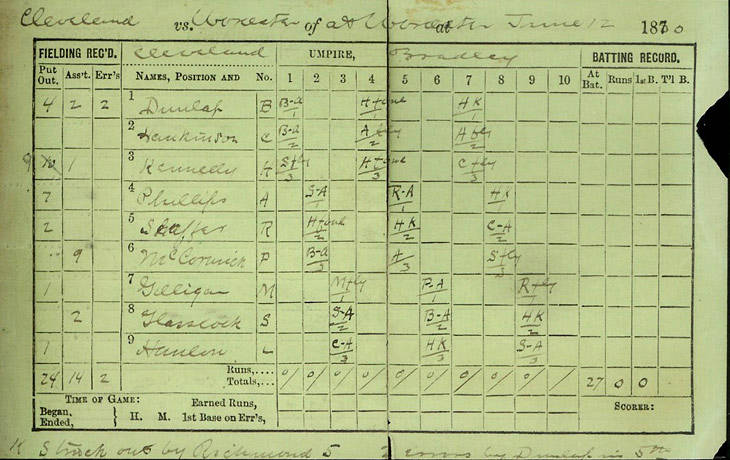 Cleveland vs. Worcester of at Worcester June 12 1880
FIELDING REC'D. Cleveland UMPIRE, Bradley BATTING RECORD.
Put Out. Ass't. Err's NAMES, POSITION AND No. 1 2 3 4 5 6 7 8 9 10 At Bat. Runs 1st B. T'l B.
4 2 2 1 Dunlap B B-A/1 H foul/1 HK/1
2 Hankinson C B-A/2 A fly/2 A fly/2
1 3 Kennedy H S fly/3 H foul/3 C fly/3
7 4 Phillips A S-A/1 R-A/1 HK/1
2 5 Shaffer R H foul/2 HK/2 C-A/2
9 6 McCormick P B-A/3 A/3 S fly/3
1 7 Gilligan M M fly/1 P-A/1 R fly/1
2 8 Glasscock S S-A/2 B-A/2 HK/2
1 9 Hanlon L C-A/3 HK/3 S-A/3
24 14 2 Runs,.... Totals,... 0/ 0/ 0/ 0/ 0/ 0/ 0/ 0/ 0/ 27 0 0
TIME OF GAME: Earned Runs, SCORER:
Began. Ended, } H. M. 1st Base on Err's,
K Struck out by Richmond 5 2 errors by Dunlap in 5th